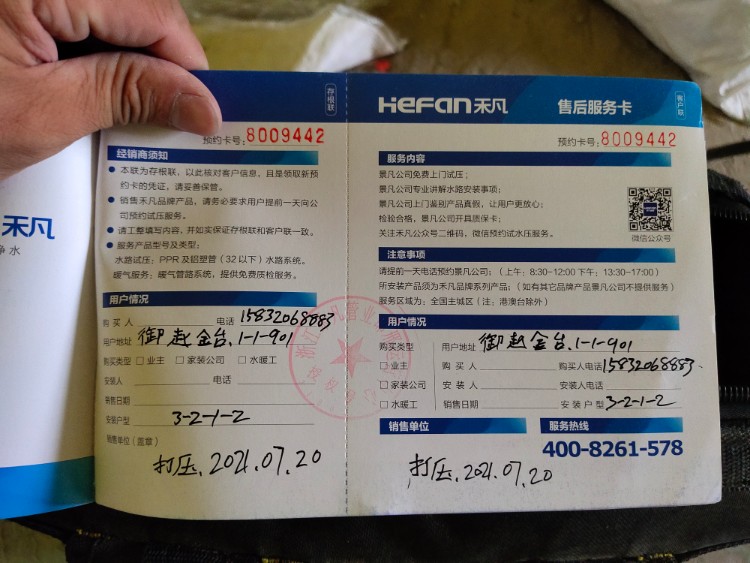 禾凡
净水
存根联
预约卡号:8009442
经销商须知
● 本联为存根联，以此核对客户信息，且是领取新预
约卡的凭证，请妥善保管。
● 销售禾凡品牌产品，请务必要求用户提前一天向公
司预约试压服务。
● 请工整填写内容，并如实保证存根联和客户联一致。
● 服务产品型号及类型:
水路试压: PPR 及铝塑管（32以下）水路系统。
暖气服务: 暖气管路系统，提供免费质检服务。
用户情况
购 买 人 电话 15832068883
用户地址 御赵金台.1-1-901
购买类型 □ 业主 □ 家装公司 □ 水暖工
安装人 电话
销售日期
安装户型 3-2-1-2
销售单位（盖章）
打压.2021.07.20
HeFan禾凡 售后服务卡
客户联
预约卡号:8009442
服务内容
景凡公司免费上门试压;
景凡公司专业讲解水路安装事项;
景凡公司上门鉴别产品真假，让用户更放心;
检验合格，景凡公司开具质保卡;
关注禾凡公众号二维码，微信预约试水压服务。
微信公众号
注意事项
请提前一天电话预约景凡公司;（上午: 8:30-12:00 下午: 13:30-17:00）
所安装产品须为禾凡品牌系列产品;（如有其它品牌产品景凡公司不提供服务）
服务区域为: 全国主城区（注: 港澳台除外）
用户情况
购买类型 用户地址 御赵金台.1-1-901
□ 业主 购 买 人 购买人电话 15832068883.
□ 家装公司 安 装 人 安装人电话
□ 水暖工 销售日期 安 装 户 型 3-2-1-2
销售单位 服务热线
400-8261-578
打压.2021.07.20